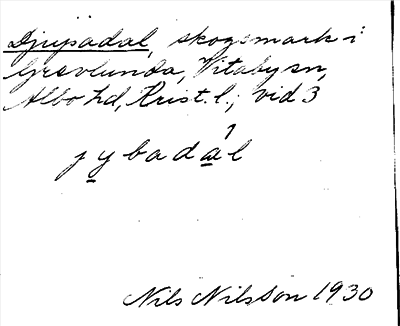 Djupadal, skogsmark i
Grevlunda, Vitaby sn,
Albo hd, Krist. l.; vid 3
jybadàl
Nils Nilsson 1930